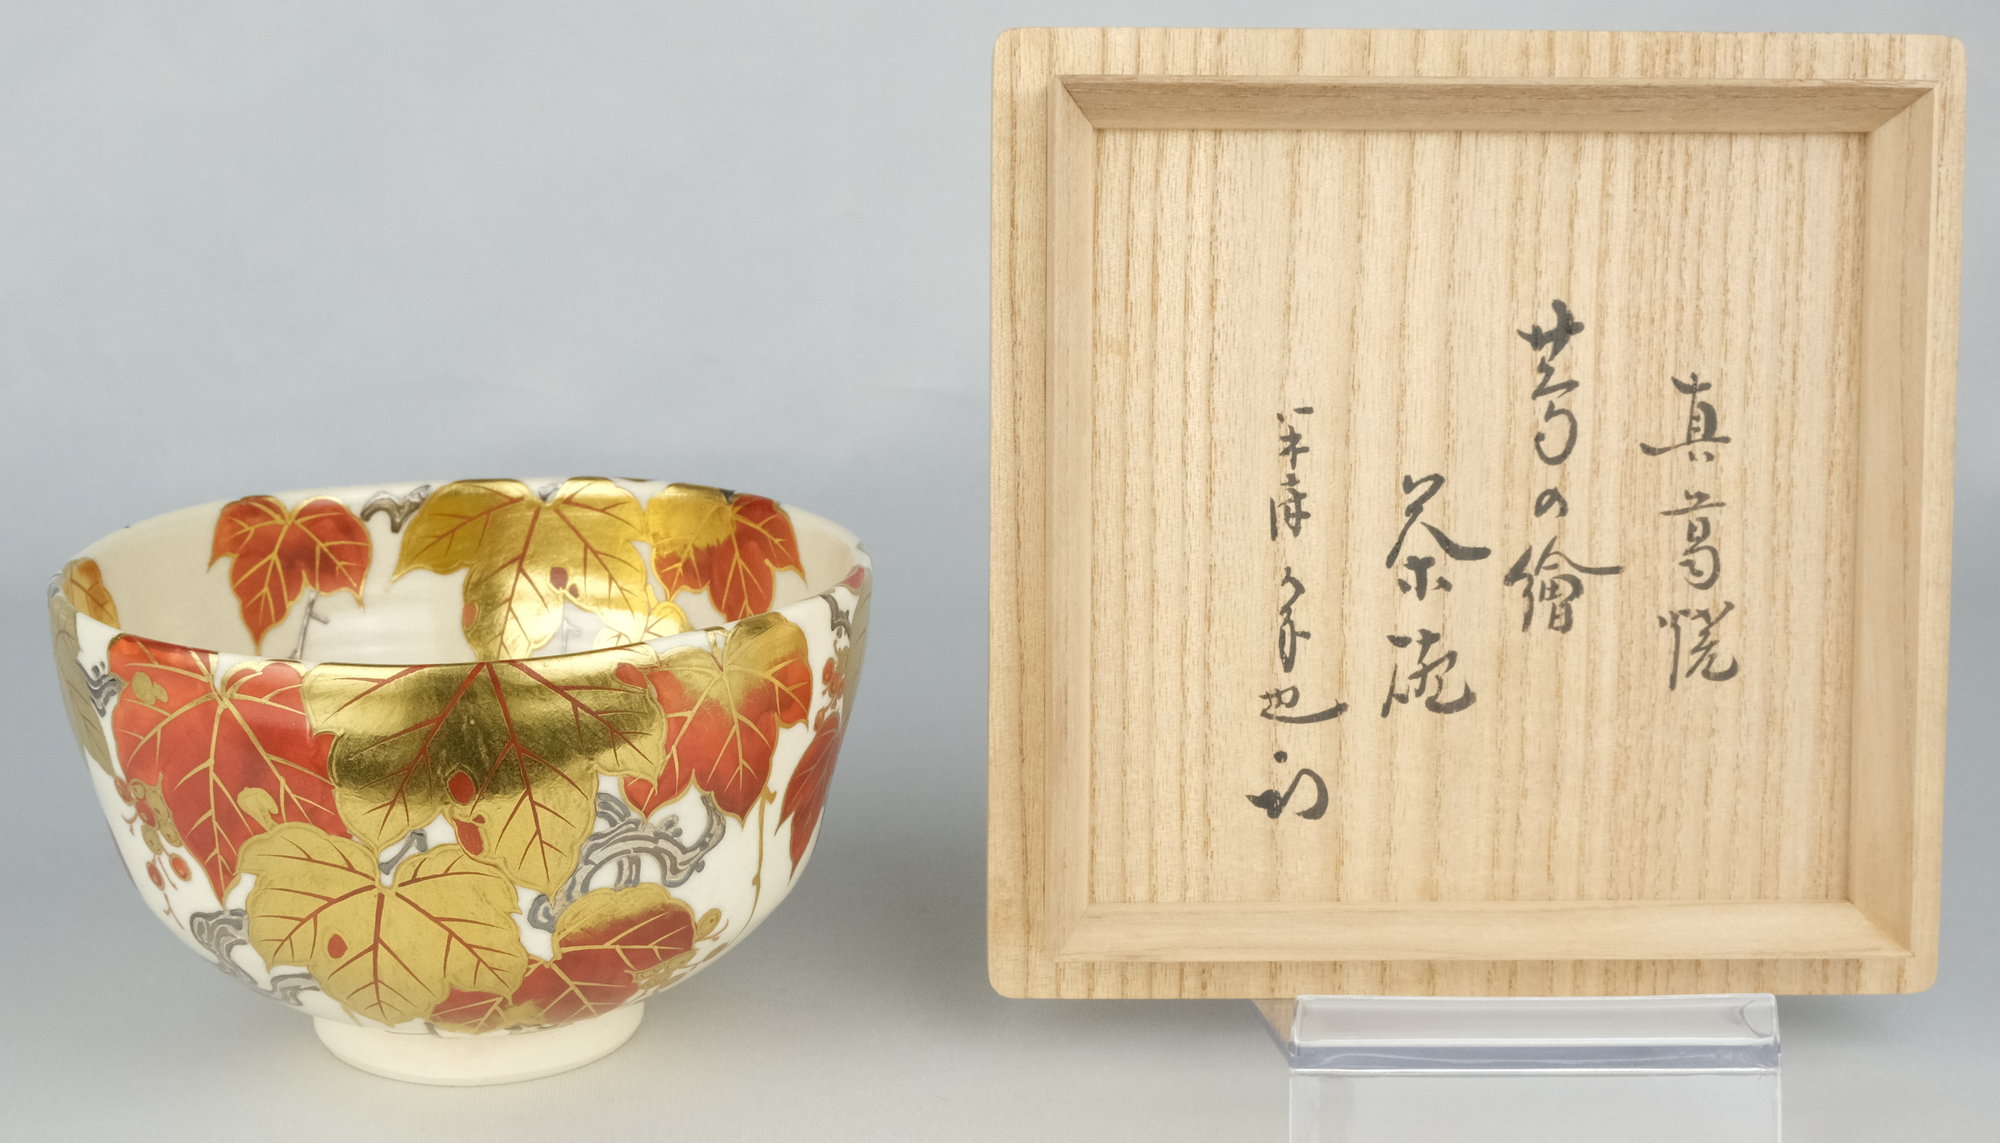 真葛焼
蔦の繪
茶碗
也